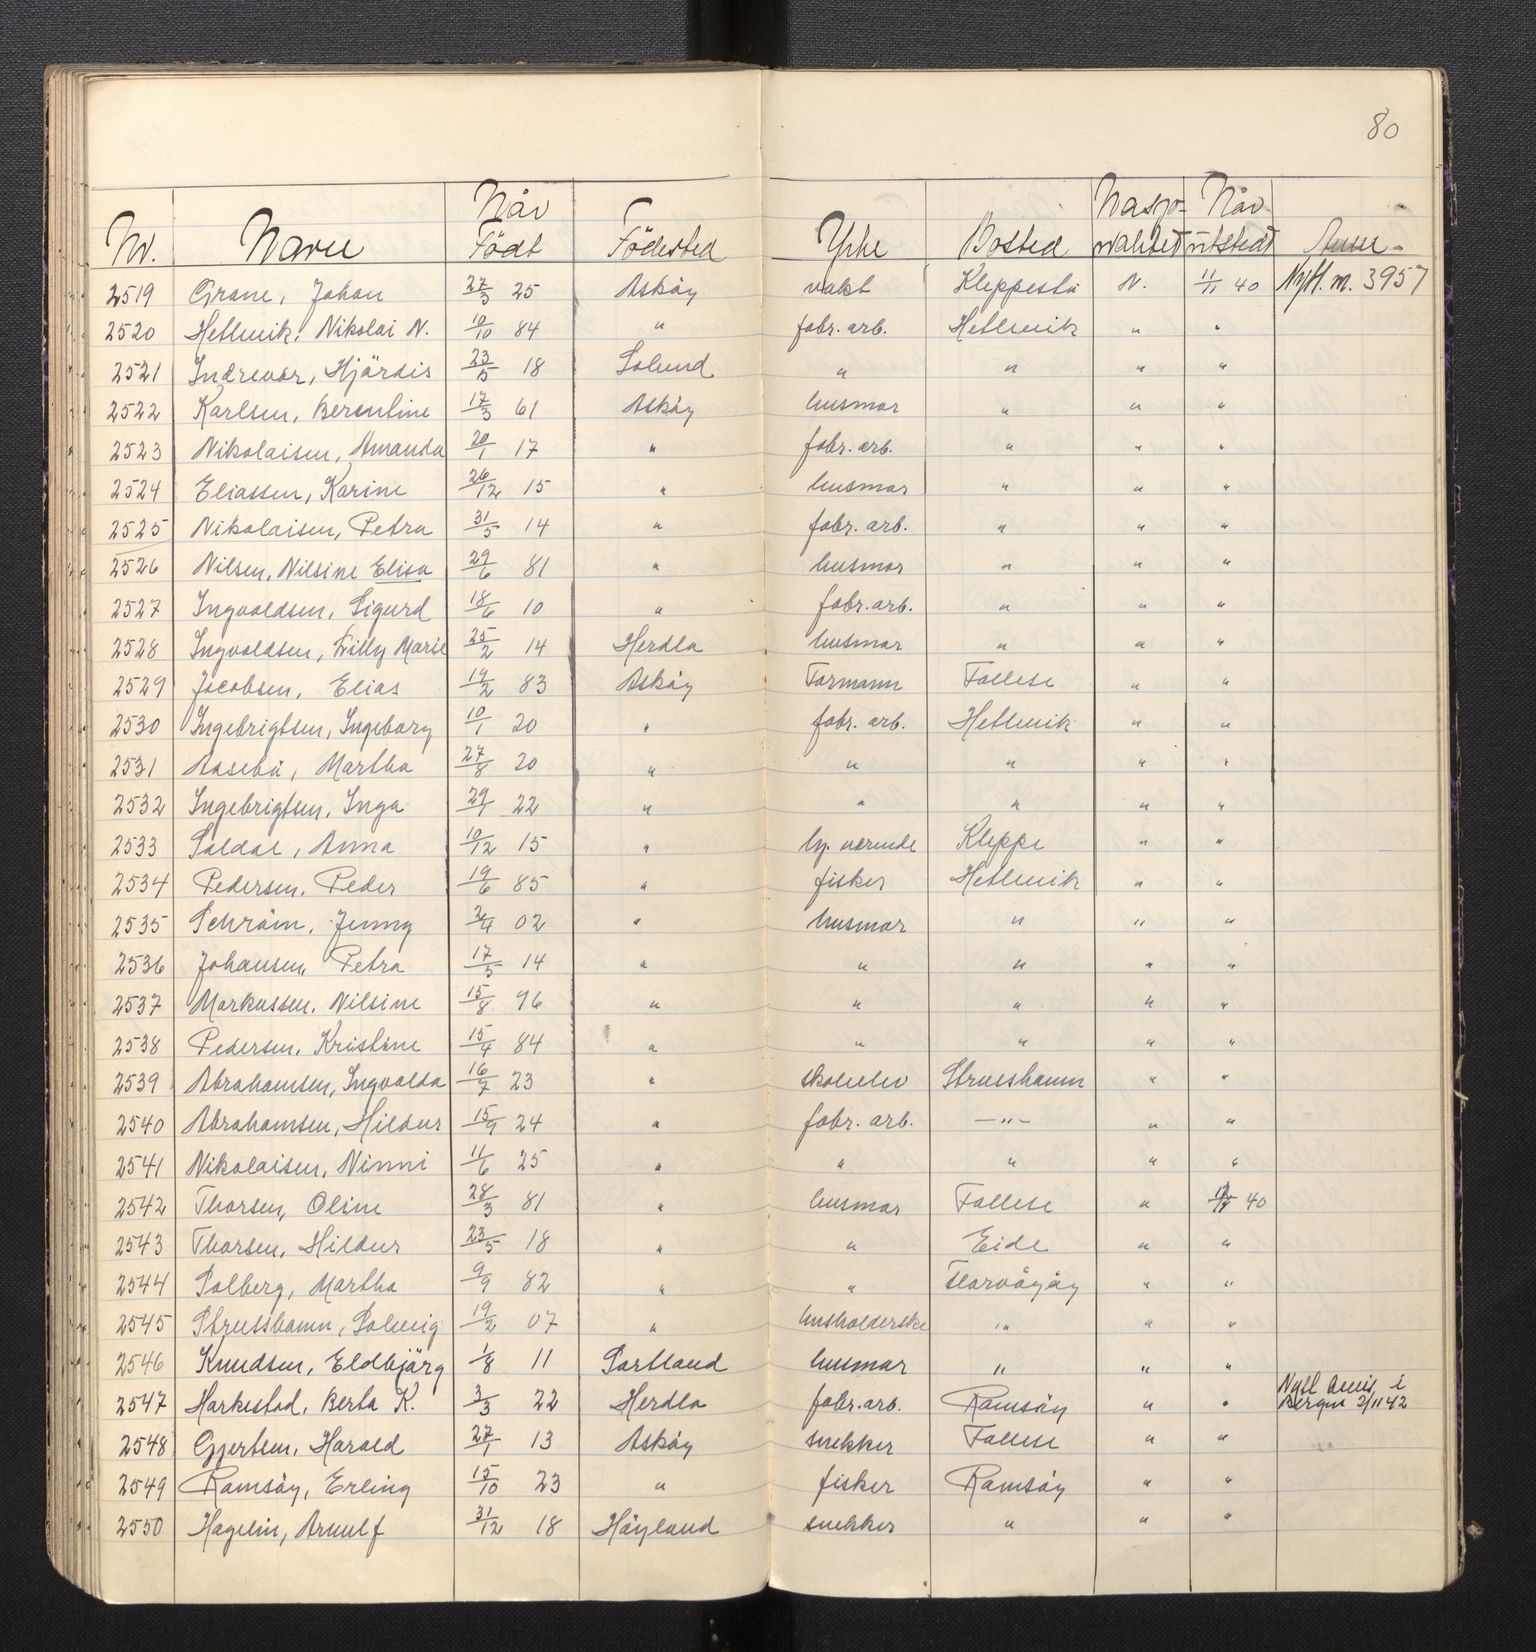 80
Nr. Navn Når Født Födested Yrke Bosted Nasjo-nalitet Når utstedt Anm.
2519 Grane, Johan 27/3 25 Asköy vakt Kleppestö N. 11/11 40 Nytt m. 3957
2520 Hetlevik, Nikolai N. 10/10 84 " fabr. arb. Hetlevik " "
2521 Indrevær, Hjördis 23/5 18 Solund " " " "
2522 Karlsen, Berentine 17/3 61 Asköy husmor " " "
2523 Nikolaisen, Amanda 20/1 17 " fabr. arb. " " "
2524 Eliassen, Karine 26/12 15 " husmor " " "
2525 Nikolaisen, Petra 31/5 14 " fabr. arb. " " "
2526 Nilsen, Nilsine Elisa 29/6 81 " husmor " " "
2527 Ingvaldsen, Sigurd 18/6 10 " fabr. arb. " " "
2528 Ingvaldsen, Willy Marie 25/2 14 Herdla husmor " " "
2529 Jacobsen, Elias 19/2 83 Asköy Formann Follese " "
2530 Ingebrigtsen, Ingeborg 10/1 20 " fabr. arb. Hetlevik " "
2531 Aasebö, Martha 27/8 20 " " " " "
2532 Ingebrigtsen, Inga 29/1 22 " " " " "
2533 Saldal, Anna 10/12 15 " hj. værende Kleppe " "
2534 Pedersen, Peder 19/6 85 " fisker Hetlevik " "
2535 Schröin, Jenny 2/4 02 " husmor " " "
2536 Johansen, Petra 17/5 14 " " " " "
2537 Markussen, Nilsine 15/8 96 " " " " "
2538 Pedersen, Kristine 15/4 84 " " " " "
2539 Abrahamsen, Ingvalda 16/7 23 " skoleelev Strusshamn " "
2540 Abrahamsen, Hildur 15/9 24 " fabr. arb. —"— " "
2541 Nikolaisen, Ninni 11/6 25 " " " " "
2542 Thorsen, Oline 28/3 81 " husmor Follese " 12/11 40
2543 Thorsen, Hildur 23/5 18 " " Eide " "
2544 Solberg, Martha 9/9 82 " " Florvågöy " "
2545 Strusshamn, Solveig 19/2 07 " husholderske " " "
2546 Knudsen, Eldbjörg 1/8 11 Sartland husmor " " "
2547 Harkestad, Berta K. 3/3 22 Herdla fabr. arb. Ramsöy " " Nytt bevis i Bergen 3/11 42
2548 Gjertsen, Harald 27/1 13 Asköy snekker Follese " "
2549 Ramsöy, Erling 15/10 23 " fisker Ramsöy " "
2550 Hagelin, Arnulf 31/12 18 Höyland snekker " " "